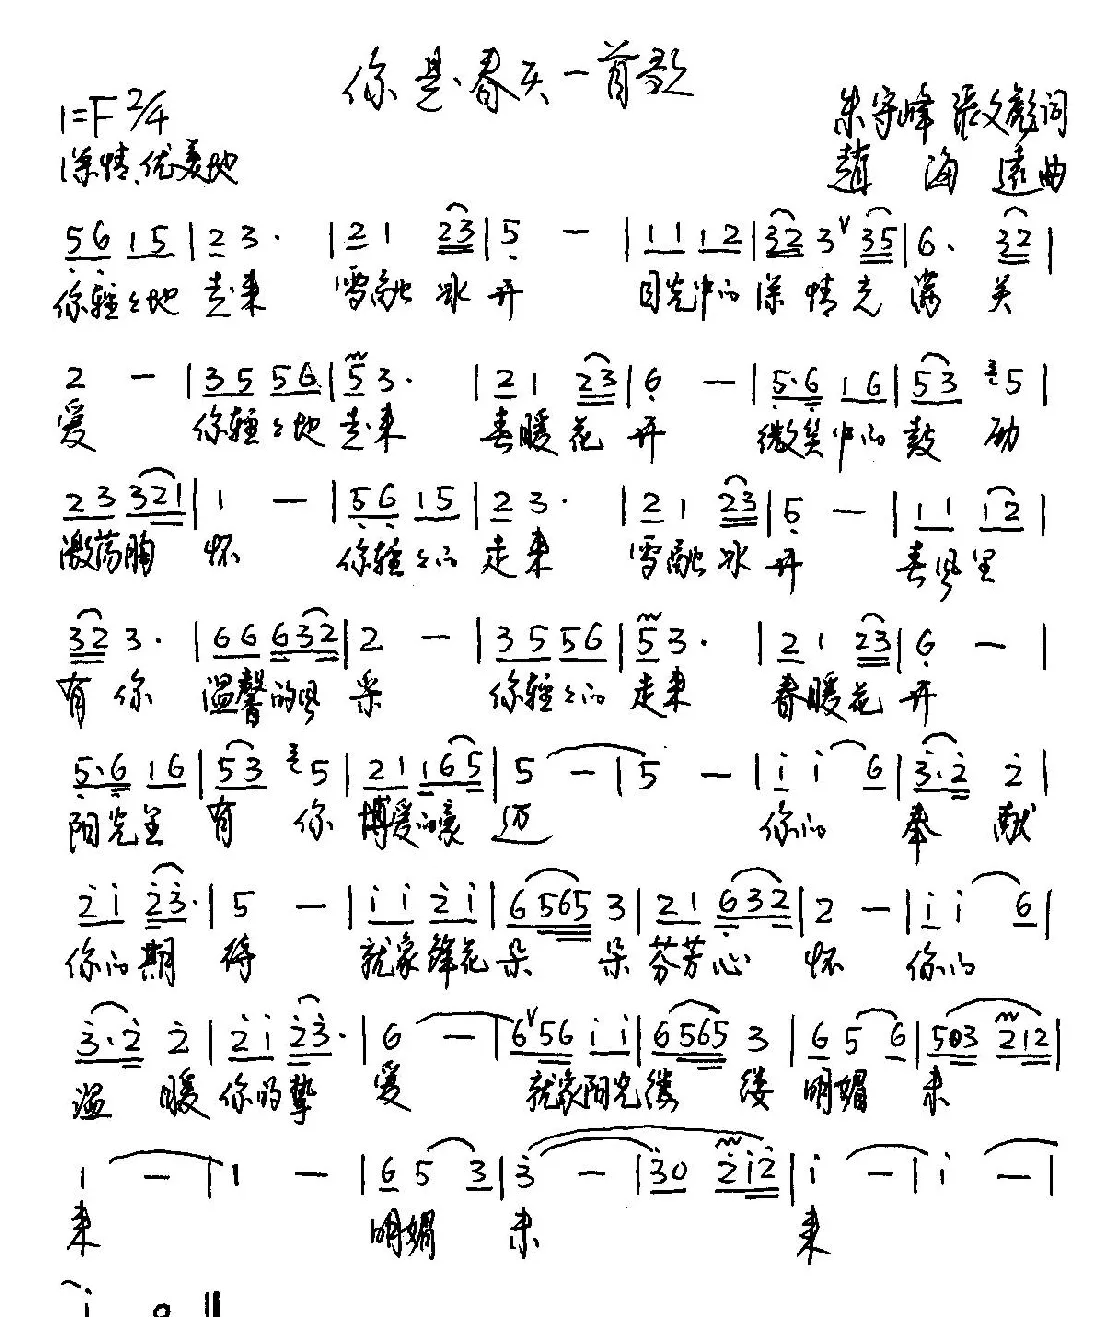 你是春天一首歌
1=F 2/4
朱守峰 张文彪词
深情、优美地
赵海远曲
5 6 1 5 | 2 3 · | 2 1 2 3 | 5 — | 1 1 1 2 | 3 2 3 ∨ 3 5 | 6 · 3 2 |
你轻々地 走来 雪融冰开 目光中的深情充满关
2 — | 3 5 5 6 | 5 3 · | 2 1 2 3 | 6 — | 5 · 6 1 6 | 5 3 5 |
爱 你轻々地走来 春暖花开 微笑中的鼓励
2 3 3 2 1 | 1 — | 5 6 1 5 | 2 3 · | 2 1 2 3 | 5 — | 1 1 1 2 |
激荡胸怀 你轻々的走来 雪融冰开 春风里
3 2 3 · | 6 6 6 3 2 | 2 — | 3 5 5 6 | 5 3 · | 2 1 2 3 | 6 — |
有你 温馨的风采 你轻々的走来 春暖花开
5 · 6 1 6 | 5 3 5 | 2 1 1 6 5 | 5 — | 5 — | i i 6 | 3 · 2 2 |
阳光里有你博爱的豪迈 你的奉献
2 i 2 3 · | 5 — | i i 2 i | 6 5 6 5 3 | 2 1 6 3 2 | 2 — | i i 6 |
你的期待 就象鲜花朵朵芬芳心怀 你的
3 · 2 2 | 2 i 2 3 · | 6 — | 6 ∨ 5 6 i i | 6 5 6 5 3 | 6 5 6 | 5 0 3 2 1 2 |
温暖你的挚爱 就象阳光缕缕明媚未
1 — | 1 — | 6 5 3 | 3 — | 3 0 2 i 2 | i — | i — |
来 明媚未来
i 0 ‖